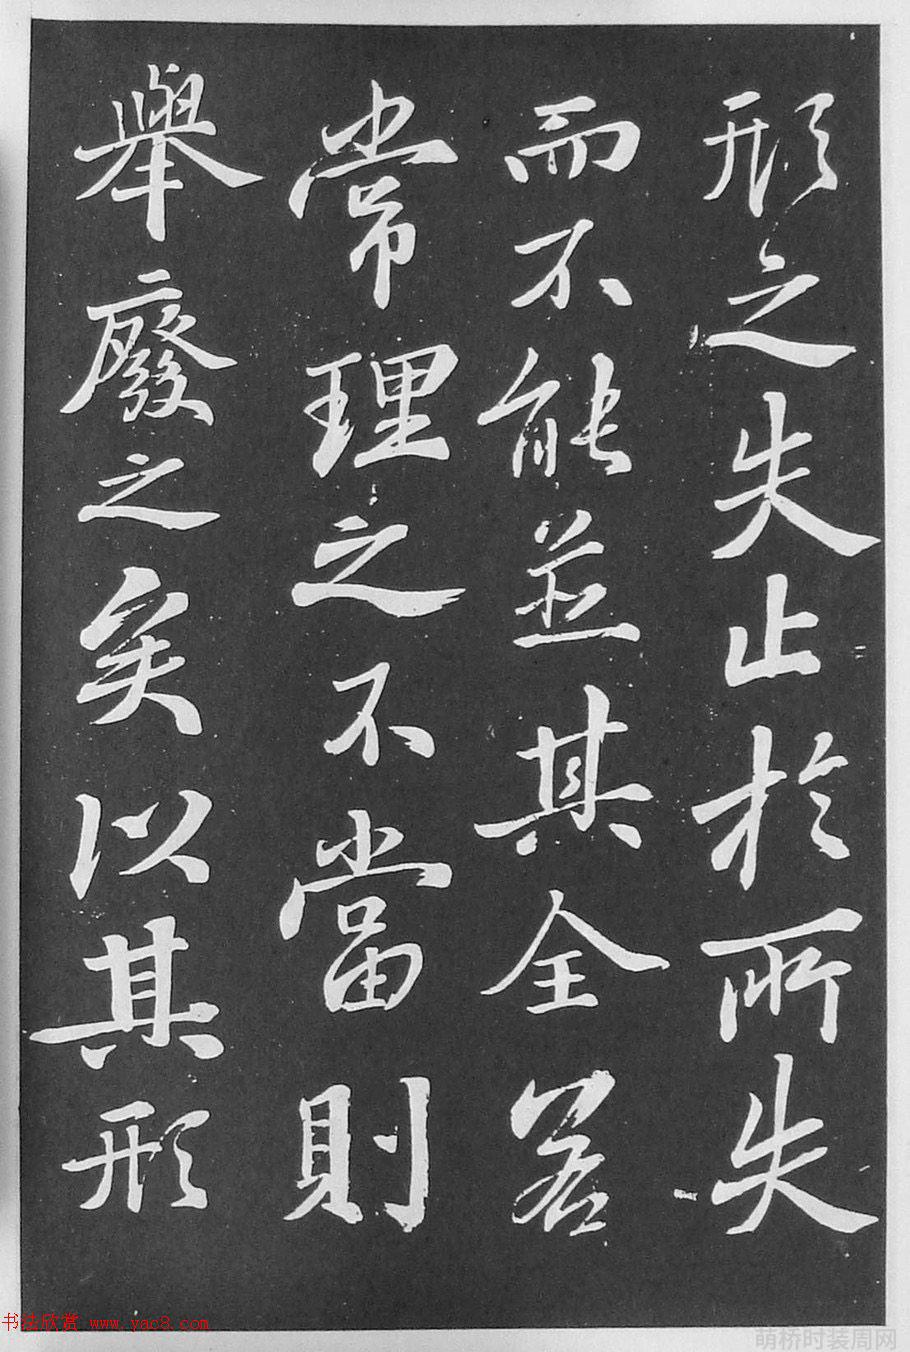 形之失止於所失
而不能並其全若
常理之不當則
舉廢之矣以其形
书法欣赏 www.yac8.com
萌桥时装周网